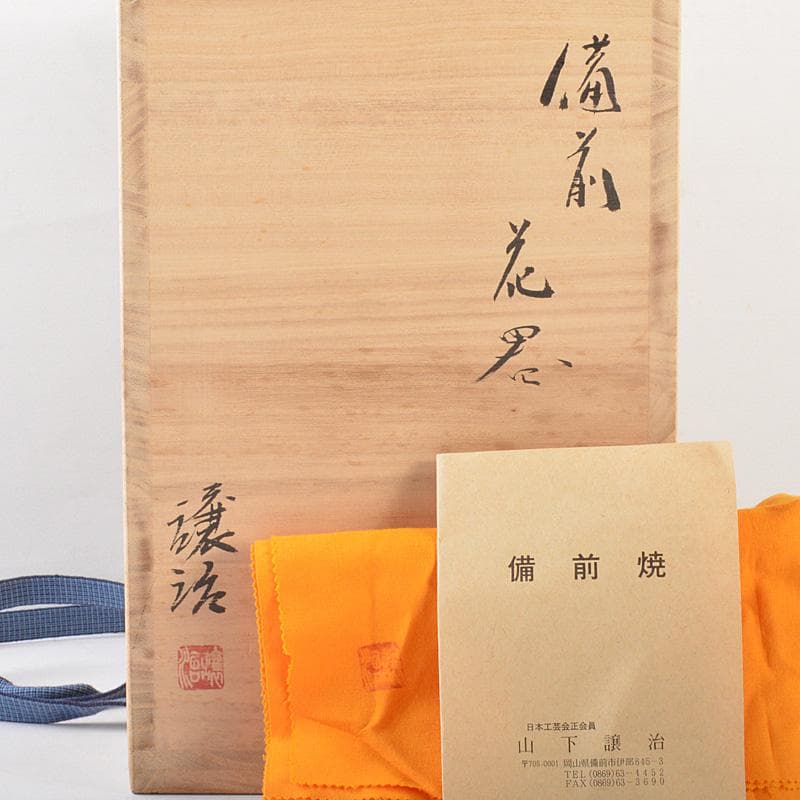 備前
花器
譲治
譲治
備前焼
日本工芸会正会員
山下譲治
〒705-0001 岡山県備前市伊部845-3
TEL (0869)63-4452
FAX (0869)63-3690